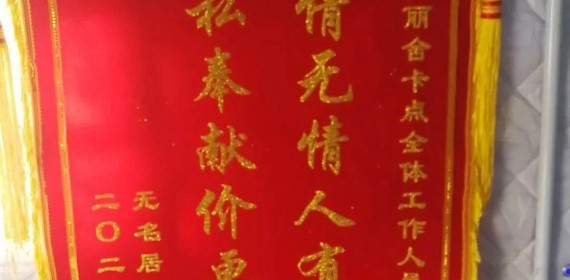 丽舍卡点全体工作人员
情无情人有
私奉献价更
无名居
二〇二